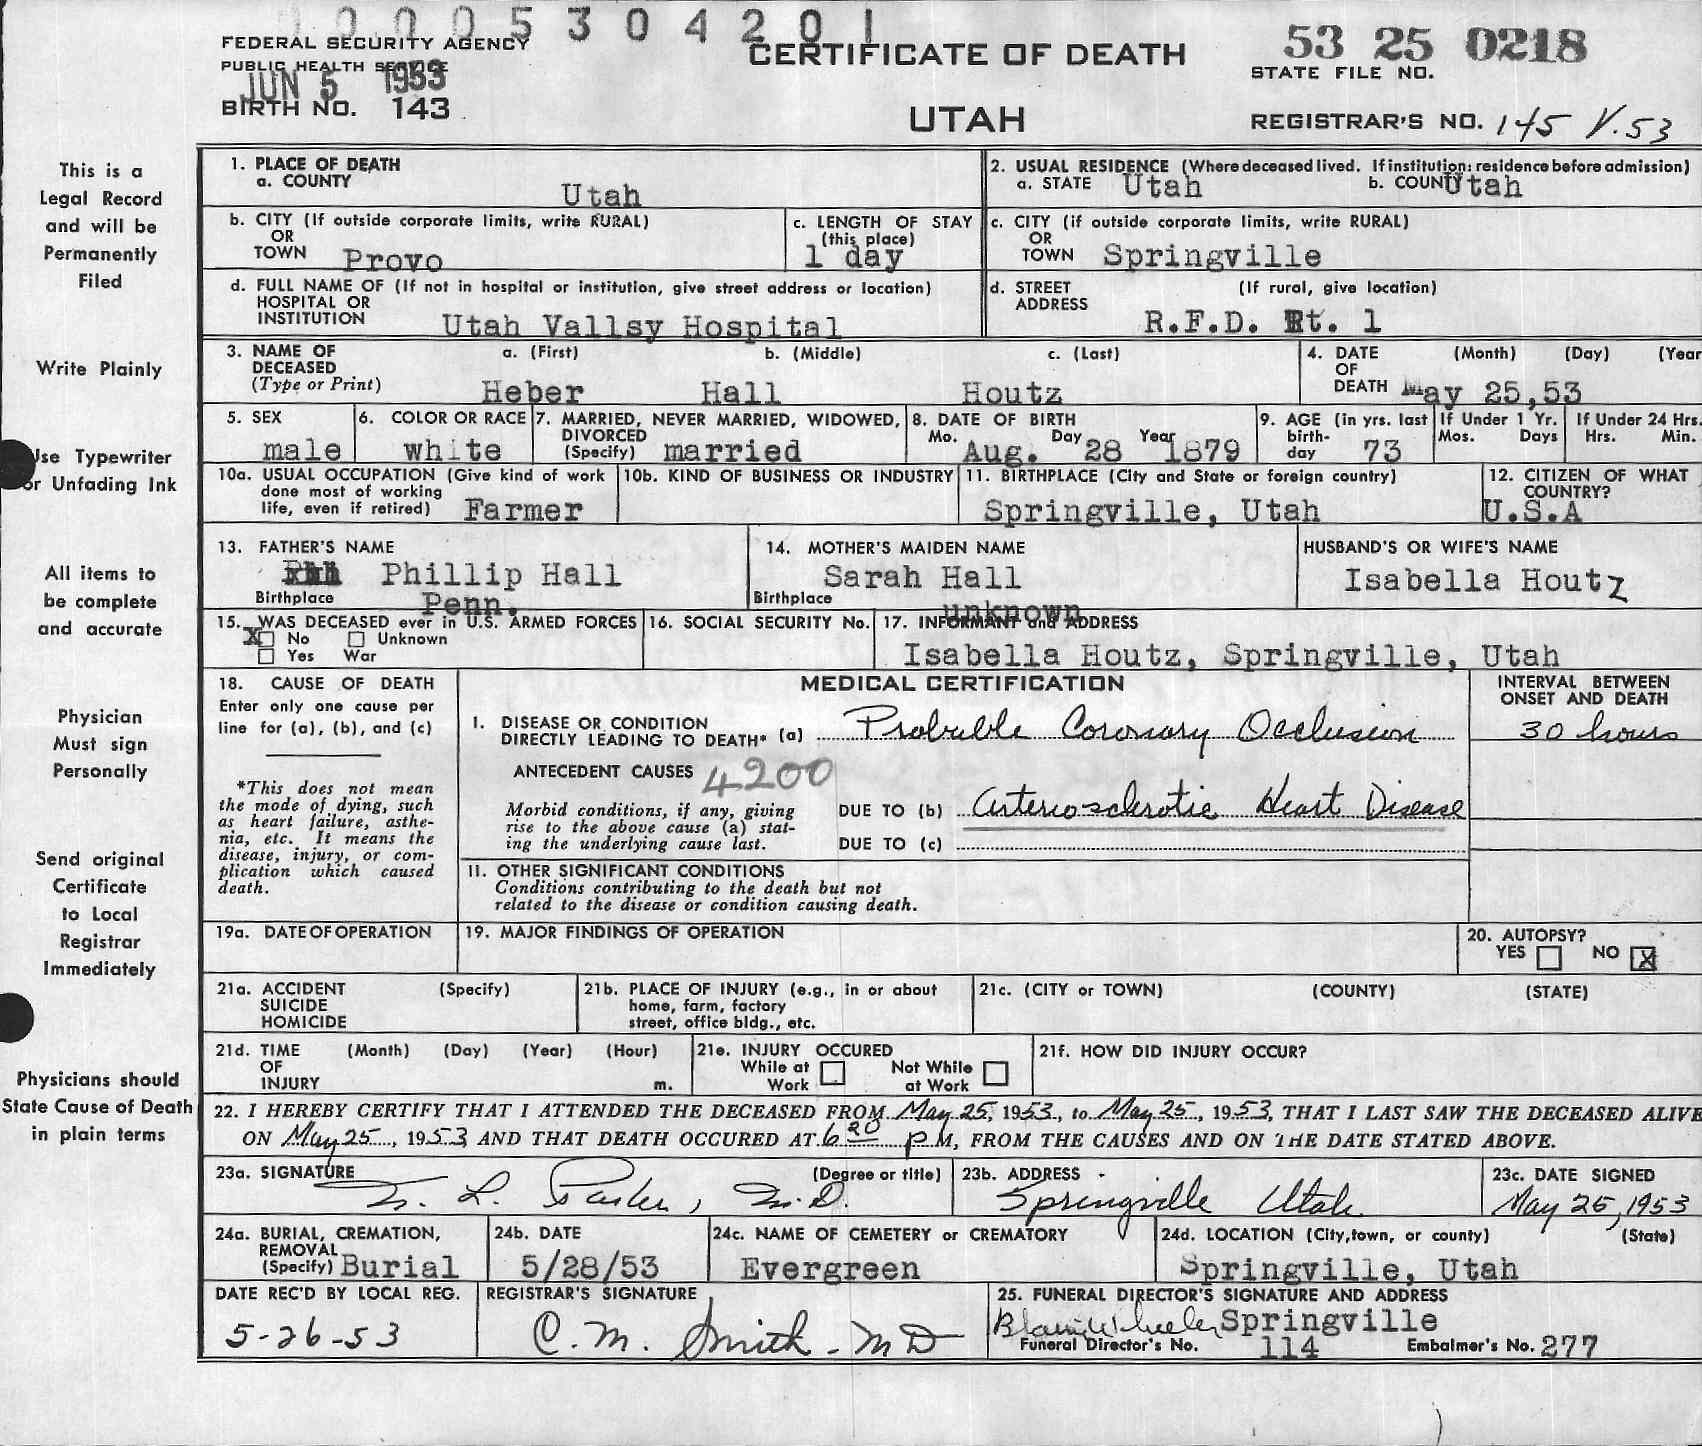 0 0 0 5 3 0 4 2 0 1
FEDERAL SECURITY AGENCY
PUBLIC HEALTH SERVICE
JUN 5 1953
BIRTH NO. 143
CERTIFICATE OF DEATH
UTAH
53 25 0218
STATE FILE NO.
REGISTRAR'S NO. 145 V.53
This is a
Legal Record
and will be
Permanently
Filed
Write Plainly
Use Typewriter
or Unfading Ink
All items to
be complete
and accurate
Physician
Must sign
Personally
Send original
Certificate
to Local
Registrar
Immediately
Physicians should
State Cause of Death
in plain terms
1. PLACE OF DEATH
a. COUNTY
Utah
2. USUAL RESIDENCE (Where deceased lived. If institution: residence before admission)
a. STATE Utah b. COUNTY Utah
b. CITY (If outside corporate limits, write RURAL)
OR
TOWN Provo
c. LENGTH OF STAY
(this place)
1 day
c. CITY (if outside corporate limits, write RURAL)
OR
TOWN Springville
d. FULL NAME OF (If not in hospital or institution, give street address or location)
HOSPITAL OR
INSTITUTION Utah Vallsy Hospital
d. STREET (If rural, give location)
ADDRESS
R.F.D. Rt. 1
3. NAME OF a. (First) b. (Middle) c. (Last)
DECEASED
(Type or Print) Heber Hall Houtz
4. DATE (Month) (Day) (Year
OF
DEATH May 25,53
5. SEX
male
6. COLOR OR RACE
white
7. MARRIED, NEVER MARRIED, WIDOWED,
DIVORCED
(Specify) married
8. DATE OF BIRTH
Mo. Day Year
Aug. 28 1879
9. AGE (in yrs. last
birth-
day 73
If Under 1 Yr.
Mos. Days
If Under 24 Hrs.
Hrs. Min.
10a. USUAL OCCUPATION (Give kind of work
done most of working
life, even if retired) Farmer
10b. KIND OF BUSINESS OR INDUSTRY
11. BIRTHPLACE (City and State or foreign country)
Springville, Utah
12. CITIZEN OF WHAT
COUNTRY?
U.S.A
13. FATHER'S NAME
Phillip Hall
Birthplace Penn.
14. MOTHER'S MAIDEN NAME
Sarah Hall
Birthplace unknown
HUSBAND'S OR WIFE'S NAME
Isabella Houtz
15. WAS DECEASED ever in U.S. ARMED FORCES
X No Unknown
Yes War
16. SOCIAL SECURITY No.
17. INFORMANT and ADDRESS
Isabella Houtz, Springville, Utah
18. CAUSE OF DEATH
Enter only one cause per
line for (a), (b), and (c)
*This does not mean
the mode of dying, such
as heart failure, asthe-
nia, etc. It means the
disease, injury, or com-
plication which caused
death.
MEDICAL CERTIFICATION
INTERVAL BETWEEN
ONSET AND DEATH
I. DISEASE OR CONDITION
DIRECTLY LEADING TO DEATH* (a) Probable Coronary Occlusion 30 hours
ANTECEDENT CAUSES 4200
Morbid conditions, if any, giving
rise to the above cause (a) stat-
ing the underlying cause last.
DUE TO (b) Arteriosclerotic Heart Disease
DUE TO (c)
11. OTHER SIGNIFICANT CONDITIONS
Conditions contributing to the death but not
related to the disease or condition causing death.
19a. DATE OF OPERATION
19. MAJOR FINDINGS OF OPERATION
20. AUTOPSY?
YES NO X
21a. ACCIDENT (Specify)
SUICIDE
HOMICIDE
21b. PLACE OF INJURY (e.g., in or about
home, farm, factory
street, office bldg., etc.
21c. (CITY or TOWN) (COUNTY) (STATE)
21d. TIME (Month) (Day) (Year) (Hour)
OF
INJURY m.
21e. INJURY OCCURED
While at Not While
Work at Work
21f. HOW DID INJURY OCCUR?
22. I HEREBY CERTIFY THAT I ATTENDED THE DECEASED FROM May 25, 1953, to May 25, 1953, THAT I LAST SAW THE DECEASED ALIVE
ON May 25, 1953 AND THAT DEATH OCCURED AT 6 20 P M, FROM THE CAUSES AND ON THE DATE STATED ABOVE.
23a. SIGNATURE (Degree or title)
L. M.D.
23b. ADDRESS
Springville Utah
23c. DATE SIGNED
May 25, 1953
24a. BURIAL, CREMATION,
REMOVAL
(Specify) Burial
24b. DATE
5/28/53
24c. NAME OF CEMETERY or CREMATORY
Evergreen
24d. LOCATION (City,town, or county) (State)
Springville, Utah
DATE REC'D BY LOCAL REG.
5-26-53
REGISTRAR'S SIGNATURE
C. M. Smith - MD
25. FUNERAL DIRECTOR'S SIGNATURE AND ADDRESS
Blain Wheeler Springville
Funeral Director's No. 114 Embalmer's No. 277